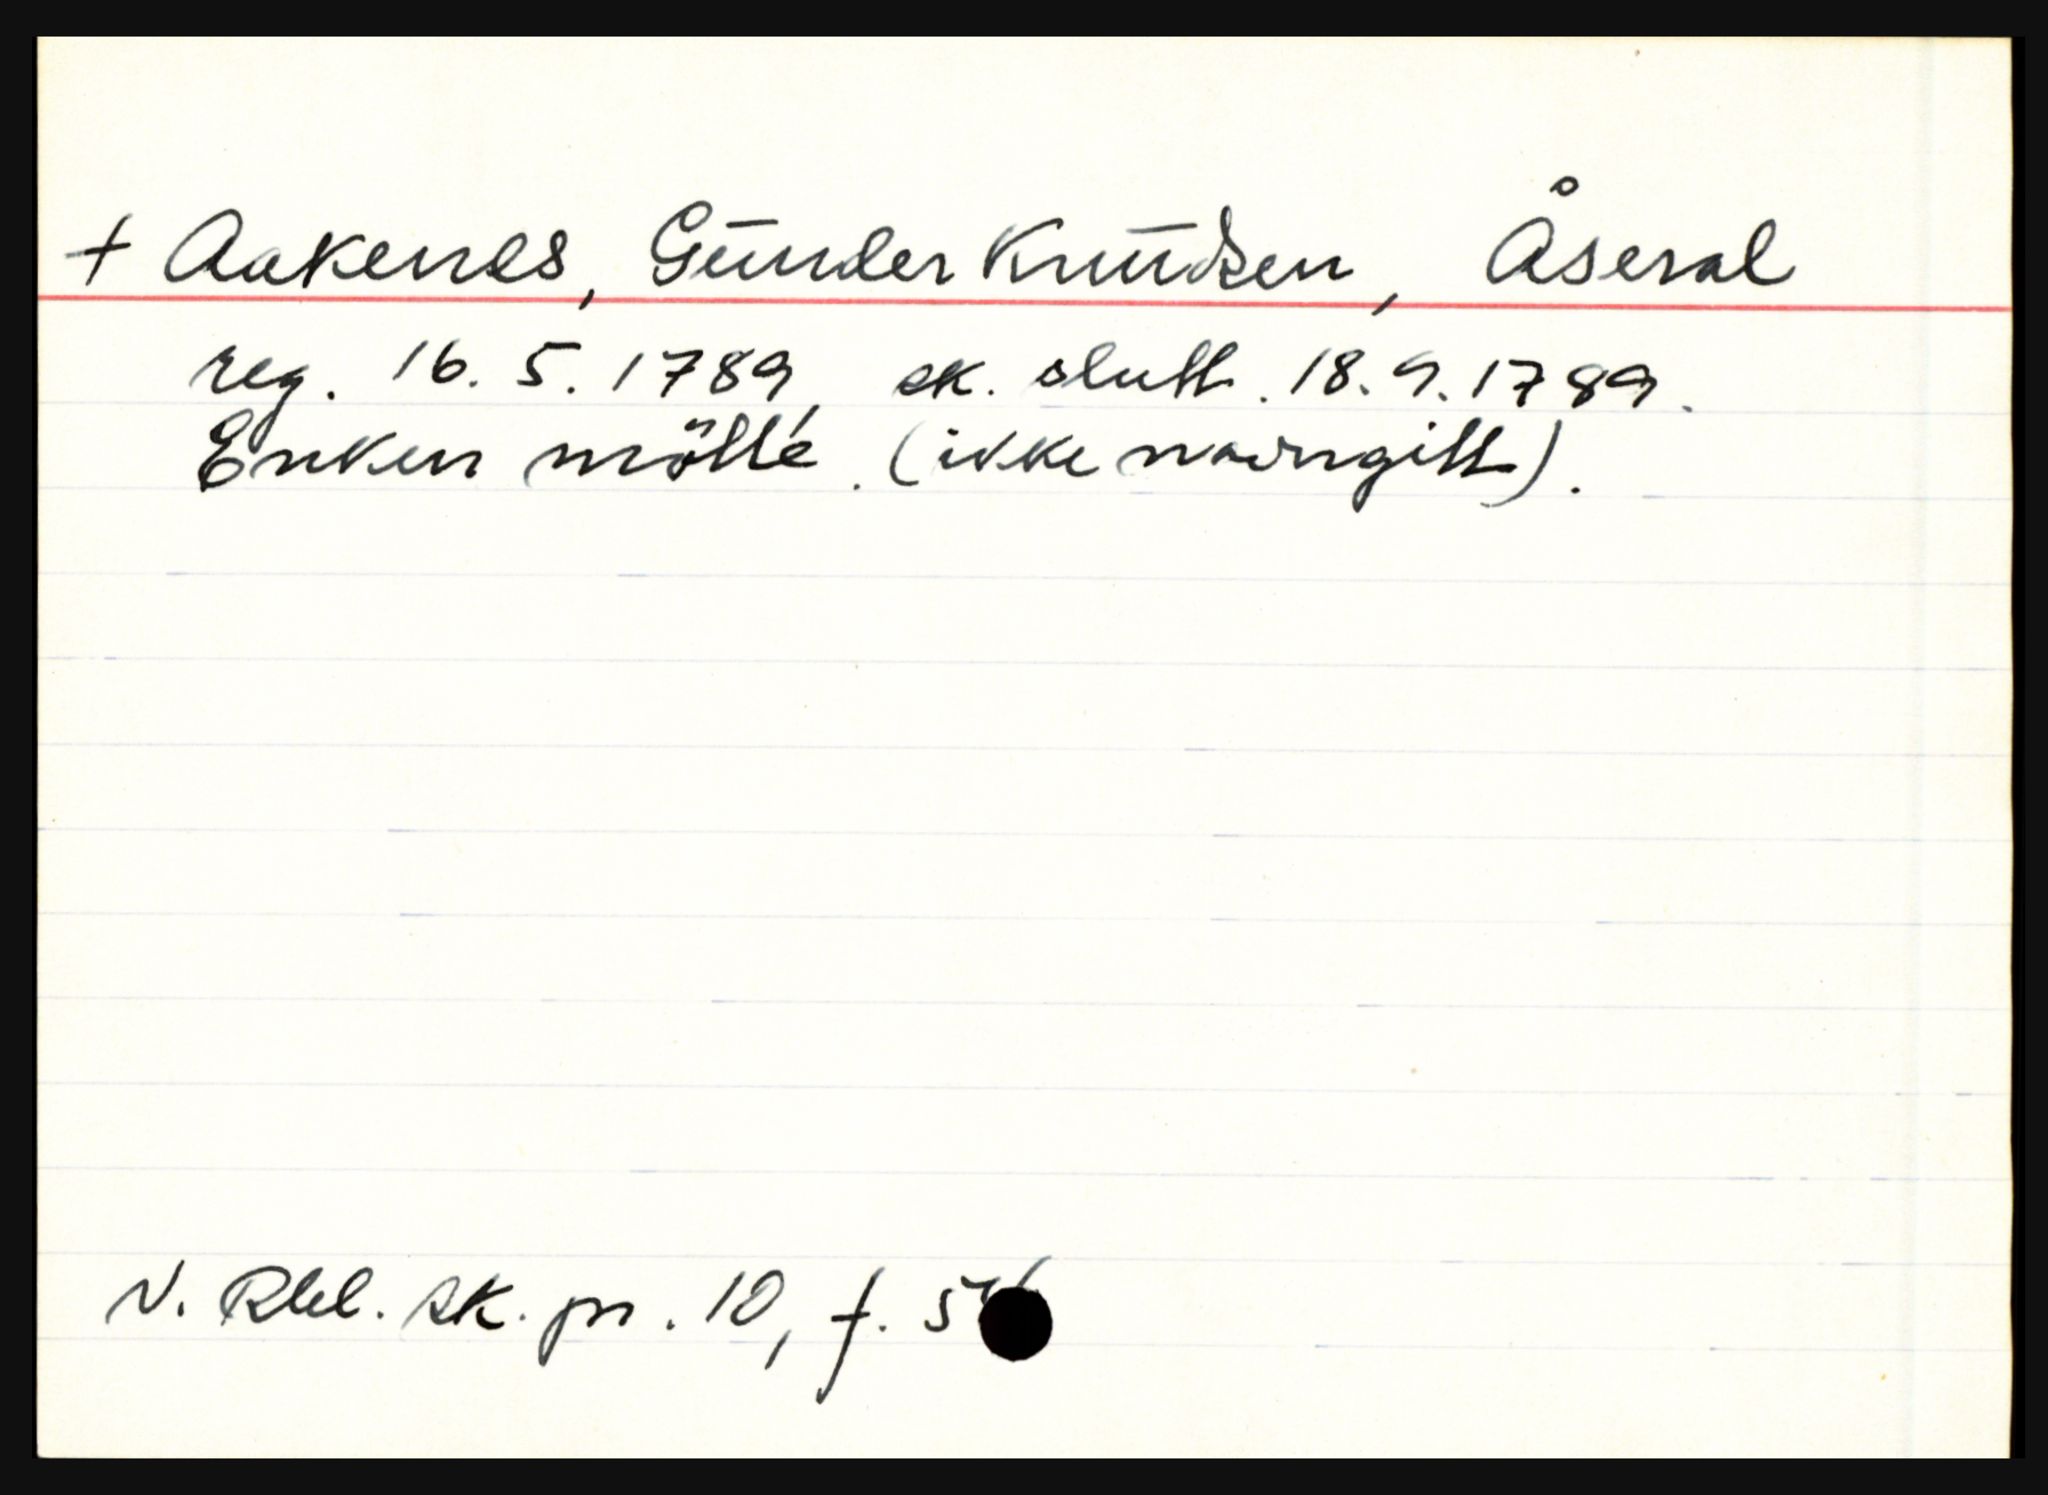 + Aakenes, Gunder Knudsen, Åseral
reg. 16.5.1789, sk. slutt. 18.9.1789.
Enken mötte. (ikke navngitt).
N. Rbl. sk. pr. 10, f.